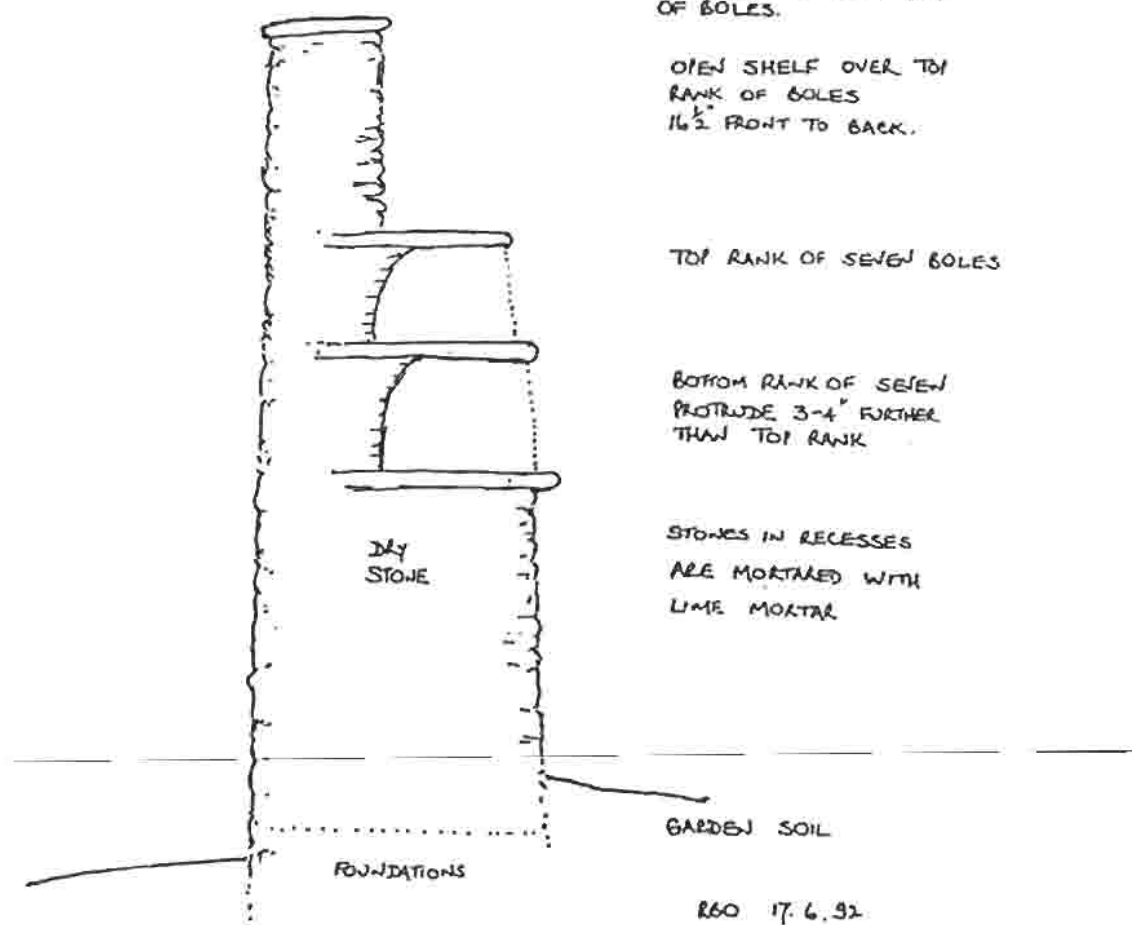 OF BOLES.
OPEN SHELF OVER TOP
RANK OF BOLES
16½" FRONT TO BACK.
TOP RANK OF SEVEN BOLES
BOTTOM RANK OF SEVEN
PROTRUDE 3-4" FURTHER
THAN TOP RANK
DRY
STONE
STONES IN RECESSES
ARE MORTARED WITH
LIME MORTAR
GARDEN SOIL
FOUNDATIONS
17.6.92